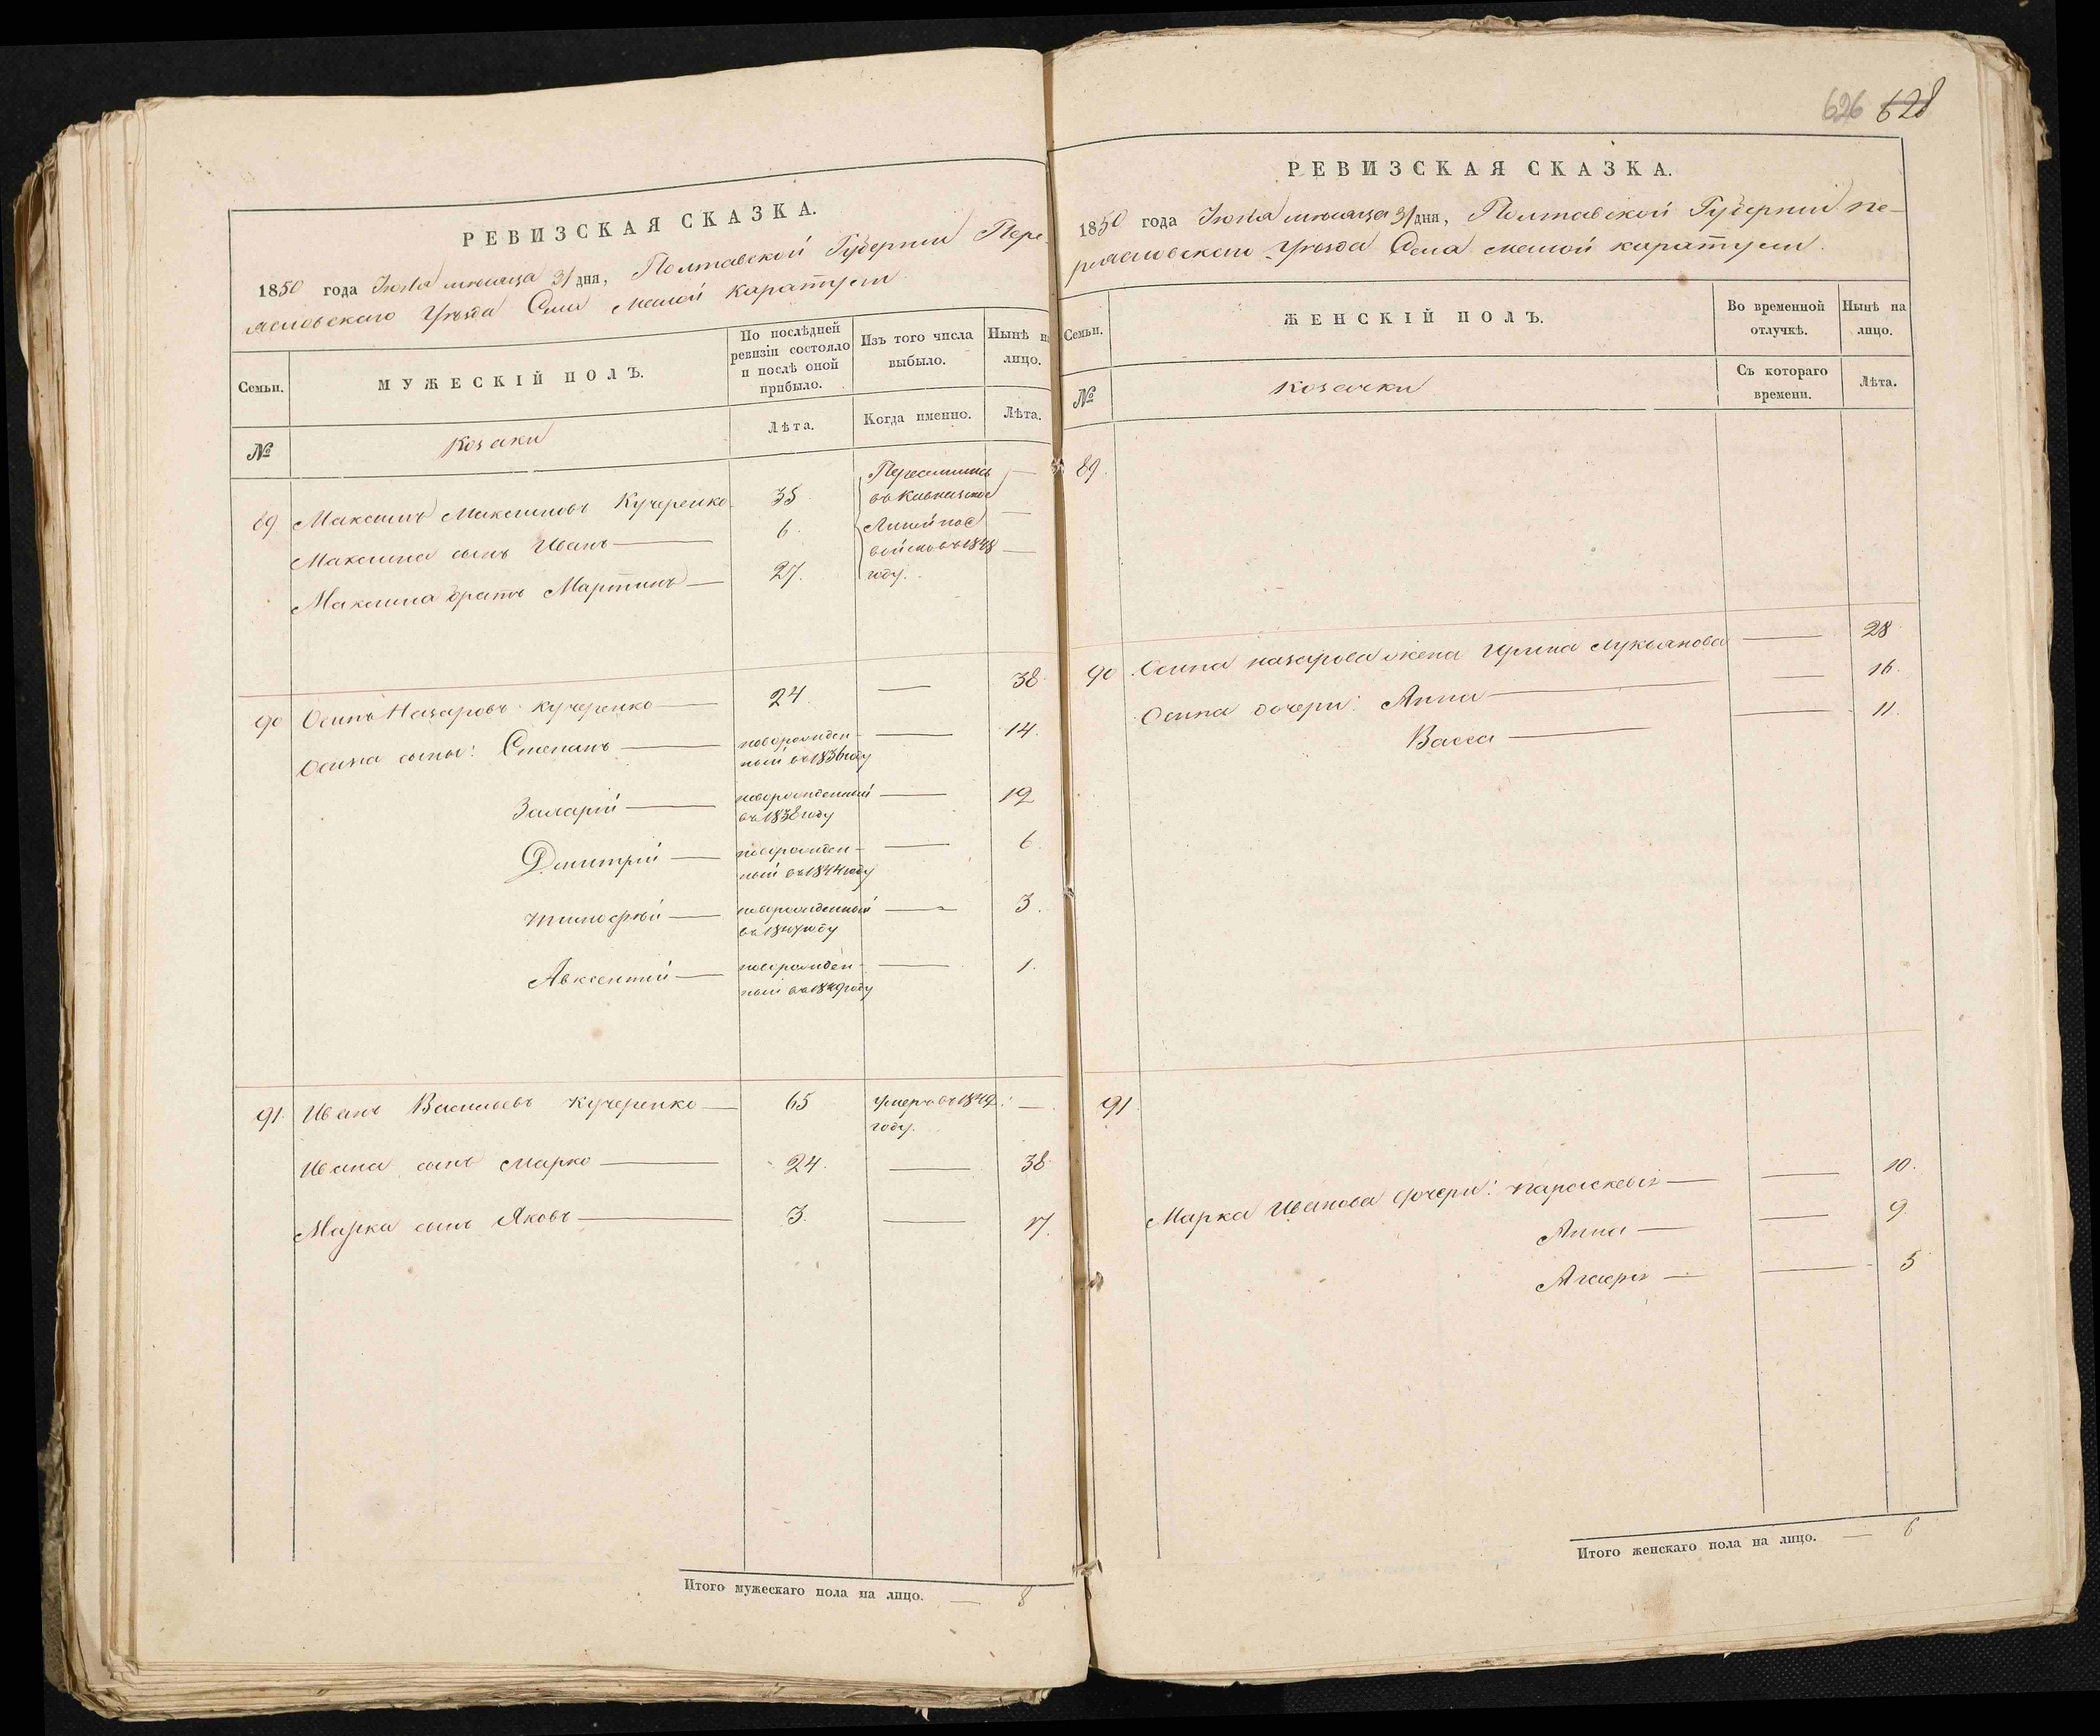 РЕВИЗСКАЯ СКАЗКА.
1850 года Іюля мѣсяца 31 дня, Полтавской Губерніи Пере-
яславскаго Уѣзда Села Малой Каратули
Семьи.
МУЖЕСКІЙ ПОЛЪ.
По послѣдней
ревизіи состояло
и послѣ оной
прибыло.
Изъ того числа
выбыло.
Нынѣ на
лицо.
№
Козаки
Лѣта.
Когда именно.
Лѣта.
89 Максимъ Максимовъ Кучеренко 35
Максима сынъ Иванъ 6.
Максима братъ Мартинъ 27.
Переселились
въ Кавказское
Линейное
войско въ 1848
году.
90 Осипъ Назаровъ Кучеренко 24 38
Осипа сыны: Степанъ новорожден-
ный въ 1836 году 14.
Захарій новорожденный
въ 1838 году 12
Дмитрій новорожден-
ный въ 1844 году 6
Тимофѣй новорожденный
въ 1847 году 3.
Авксентий новорожден-
ный въ 1849 году 1.
91. Иванъ Васильевъ Кучеренко 65 умеръ въ 1849
году.
Ивана сынъ Марко 24. 38
Марка сынъ Яковъ 3. 17.
Итого мужескаго пола на лицо. 8
626 628
РЕВИЗСКАЯ СКАЗКА.
1850 года Іюля мѣсяца 31 дня, Полтавской Губерніи Пе-
реяславскаго Уѣзда Села Малой Каратули.
Семьи.
ЖЕНСКІЙ ПОЛЪ.
Во временной
отлучкѣ.
Нынѣ на
лицо.
№
Козачки
Съ котораго
времени.
Лѣта.
89.
90 Осипа Назарова жена Ирина Лукьянова 28
Осипа дочери: Анна 16.
Васса 11.
91
Марка Иванова дочери: Параскевія 10.
Анна 9.
5
Итого женскаго пола на лицо. 6